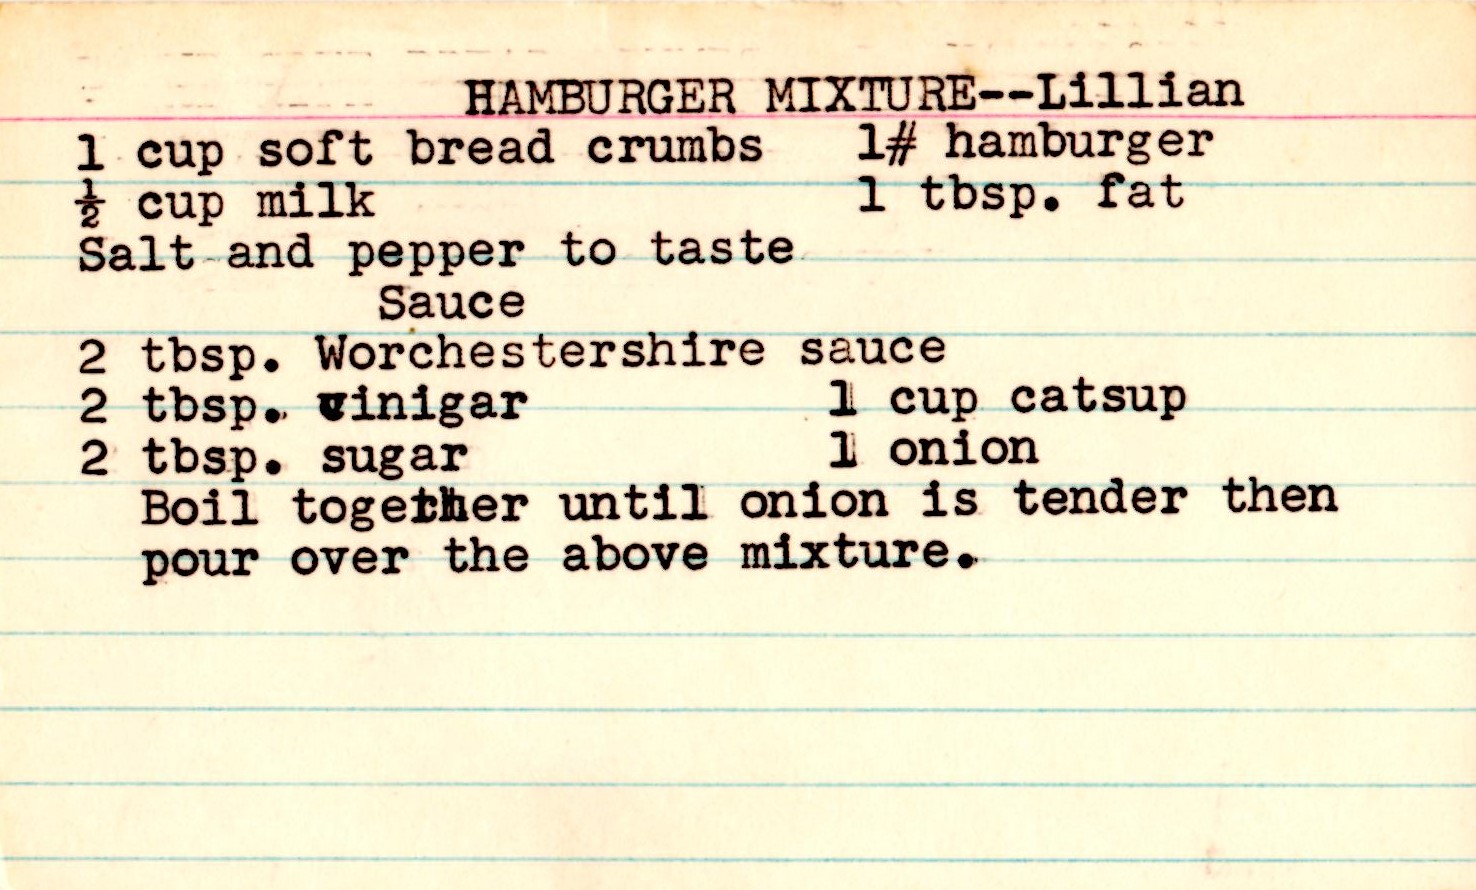 HAMBURGER MIXTURE--Lillian
1 cup soft bread crumbs 1# hamburger
½ cup milk 1 tbsp. fat
Salt and pepper to taste
Sauce
2 tbsp. Worchestershire sauce
2 tbsp. vinigar 1 cup catsup
2 tbsp. sugar 1 onion
Boil together until onion is tender then
pour over the above mixture.